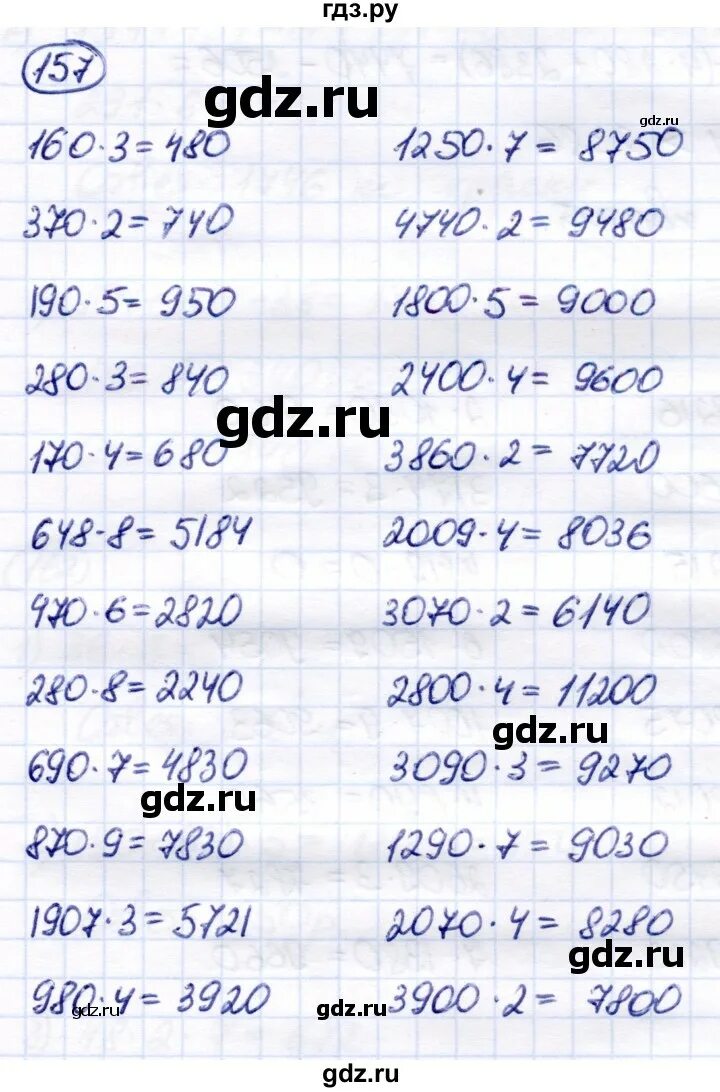 гдз.ру
157
gdz.ru
gdz.ru
160·3=480
370·2=740
190·5=950
280·3=840
gdz.ru
170·4=680
648·8=5184
470·6=2820
280·8=2240
690·7=4830
gdz.ru
870·9=7830
1907·3=5721
980·4=3920
gdz.ru
1250·7=8750
4740·2=9480
1800·5=9000
2400·4=9600
3860·2=7720
2009·4=8036
3070·2=6140
2800·4=11200
gdz.ru
3090·3=9270
1290·7=9030
2070·4=8280
gdz.ru
3900·2=7800
gdz.ru
gdz.ru